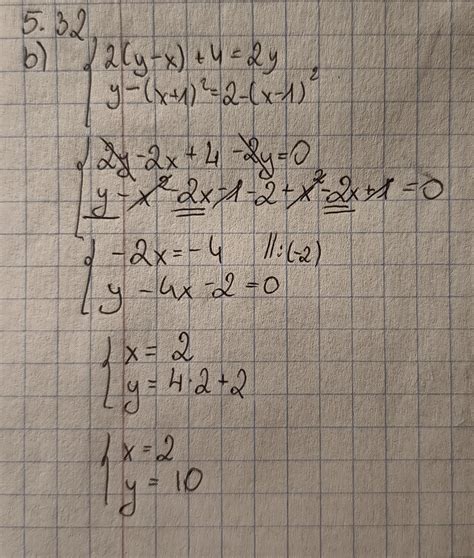 5.32
b) { 2(y-x)+4=2y
y-(x+1)²=2-(x-1)²
{ 2y-2x+4-2y=0
y-x²-2x-1-2+x²-2x+1=0
{ -2x=-4 //:(-2)
y-4x-2=0
{ x=2
y=4·2+2
{ x=2
y=10